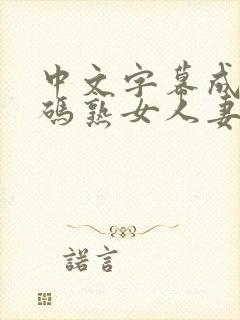 中文字幕成
碼熟女人妻
諾言